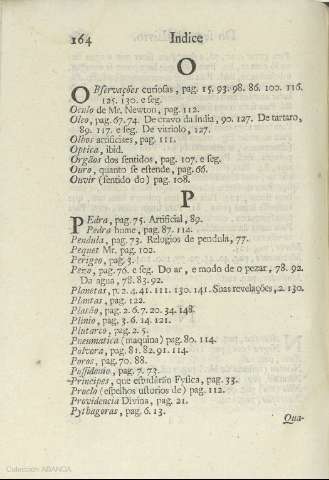 164 Indice
O
OBservações curiosas, pag. 15. 93. 98. 86. 100. 116.
125. 130. e seg.
Oculo de Mr. Newton, pag. 112.
Oleo, pag. 67. 74. De cravo da India, 90. 127. De tartaro,
89. 117. e seg. De vitriolo, 127.
Olhos artificiaes, pag. 111.
Optica, ibid.
Orgãos dos sentidos, pag. 107. e seg.
Ouro, quanto se estende, pag. 66.
Ouvir (sentido do) pag. 108.
P
PEdra, pag. 75. Artificial, 89.
Pedra hume, pag. 87. 114.
Pendula, pag. 73. Relogios de pendula, 77.
Pequet Mr. pag. 102.
Perigeo, pag. 3.
Pezo, pag. 76. e seg. Do ar, e modo de o pezar, 78. 92.
Da agua, 78. 83. 92.
Planetas, p. 2. 4. 41. 111. 130. 141. Suas revelações, 2. 130.
Plantas, pag. 122.
Platão, pag. 2. 6. 7. 20. 34. 148.
Plinio, pag. 3. 6. 14. 121.
Plutarco, pag. 2. 5.
Pneumatica (maquina) pag. 80. 114.
Polvora, pag. 81. 82. 91. 114.
Poros, pag. 70. 88.
Possidonio, pag. 7. 73.
Principes, que estudárão Fysica, pag. 33.
Proclo (espelhos ustorios de) pag. 112.
Providencia Divina, pag. 21.
Pythagoras, pag. 6. 13.
Qua-
Colección ABANCA